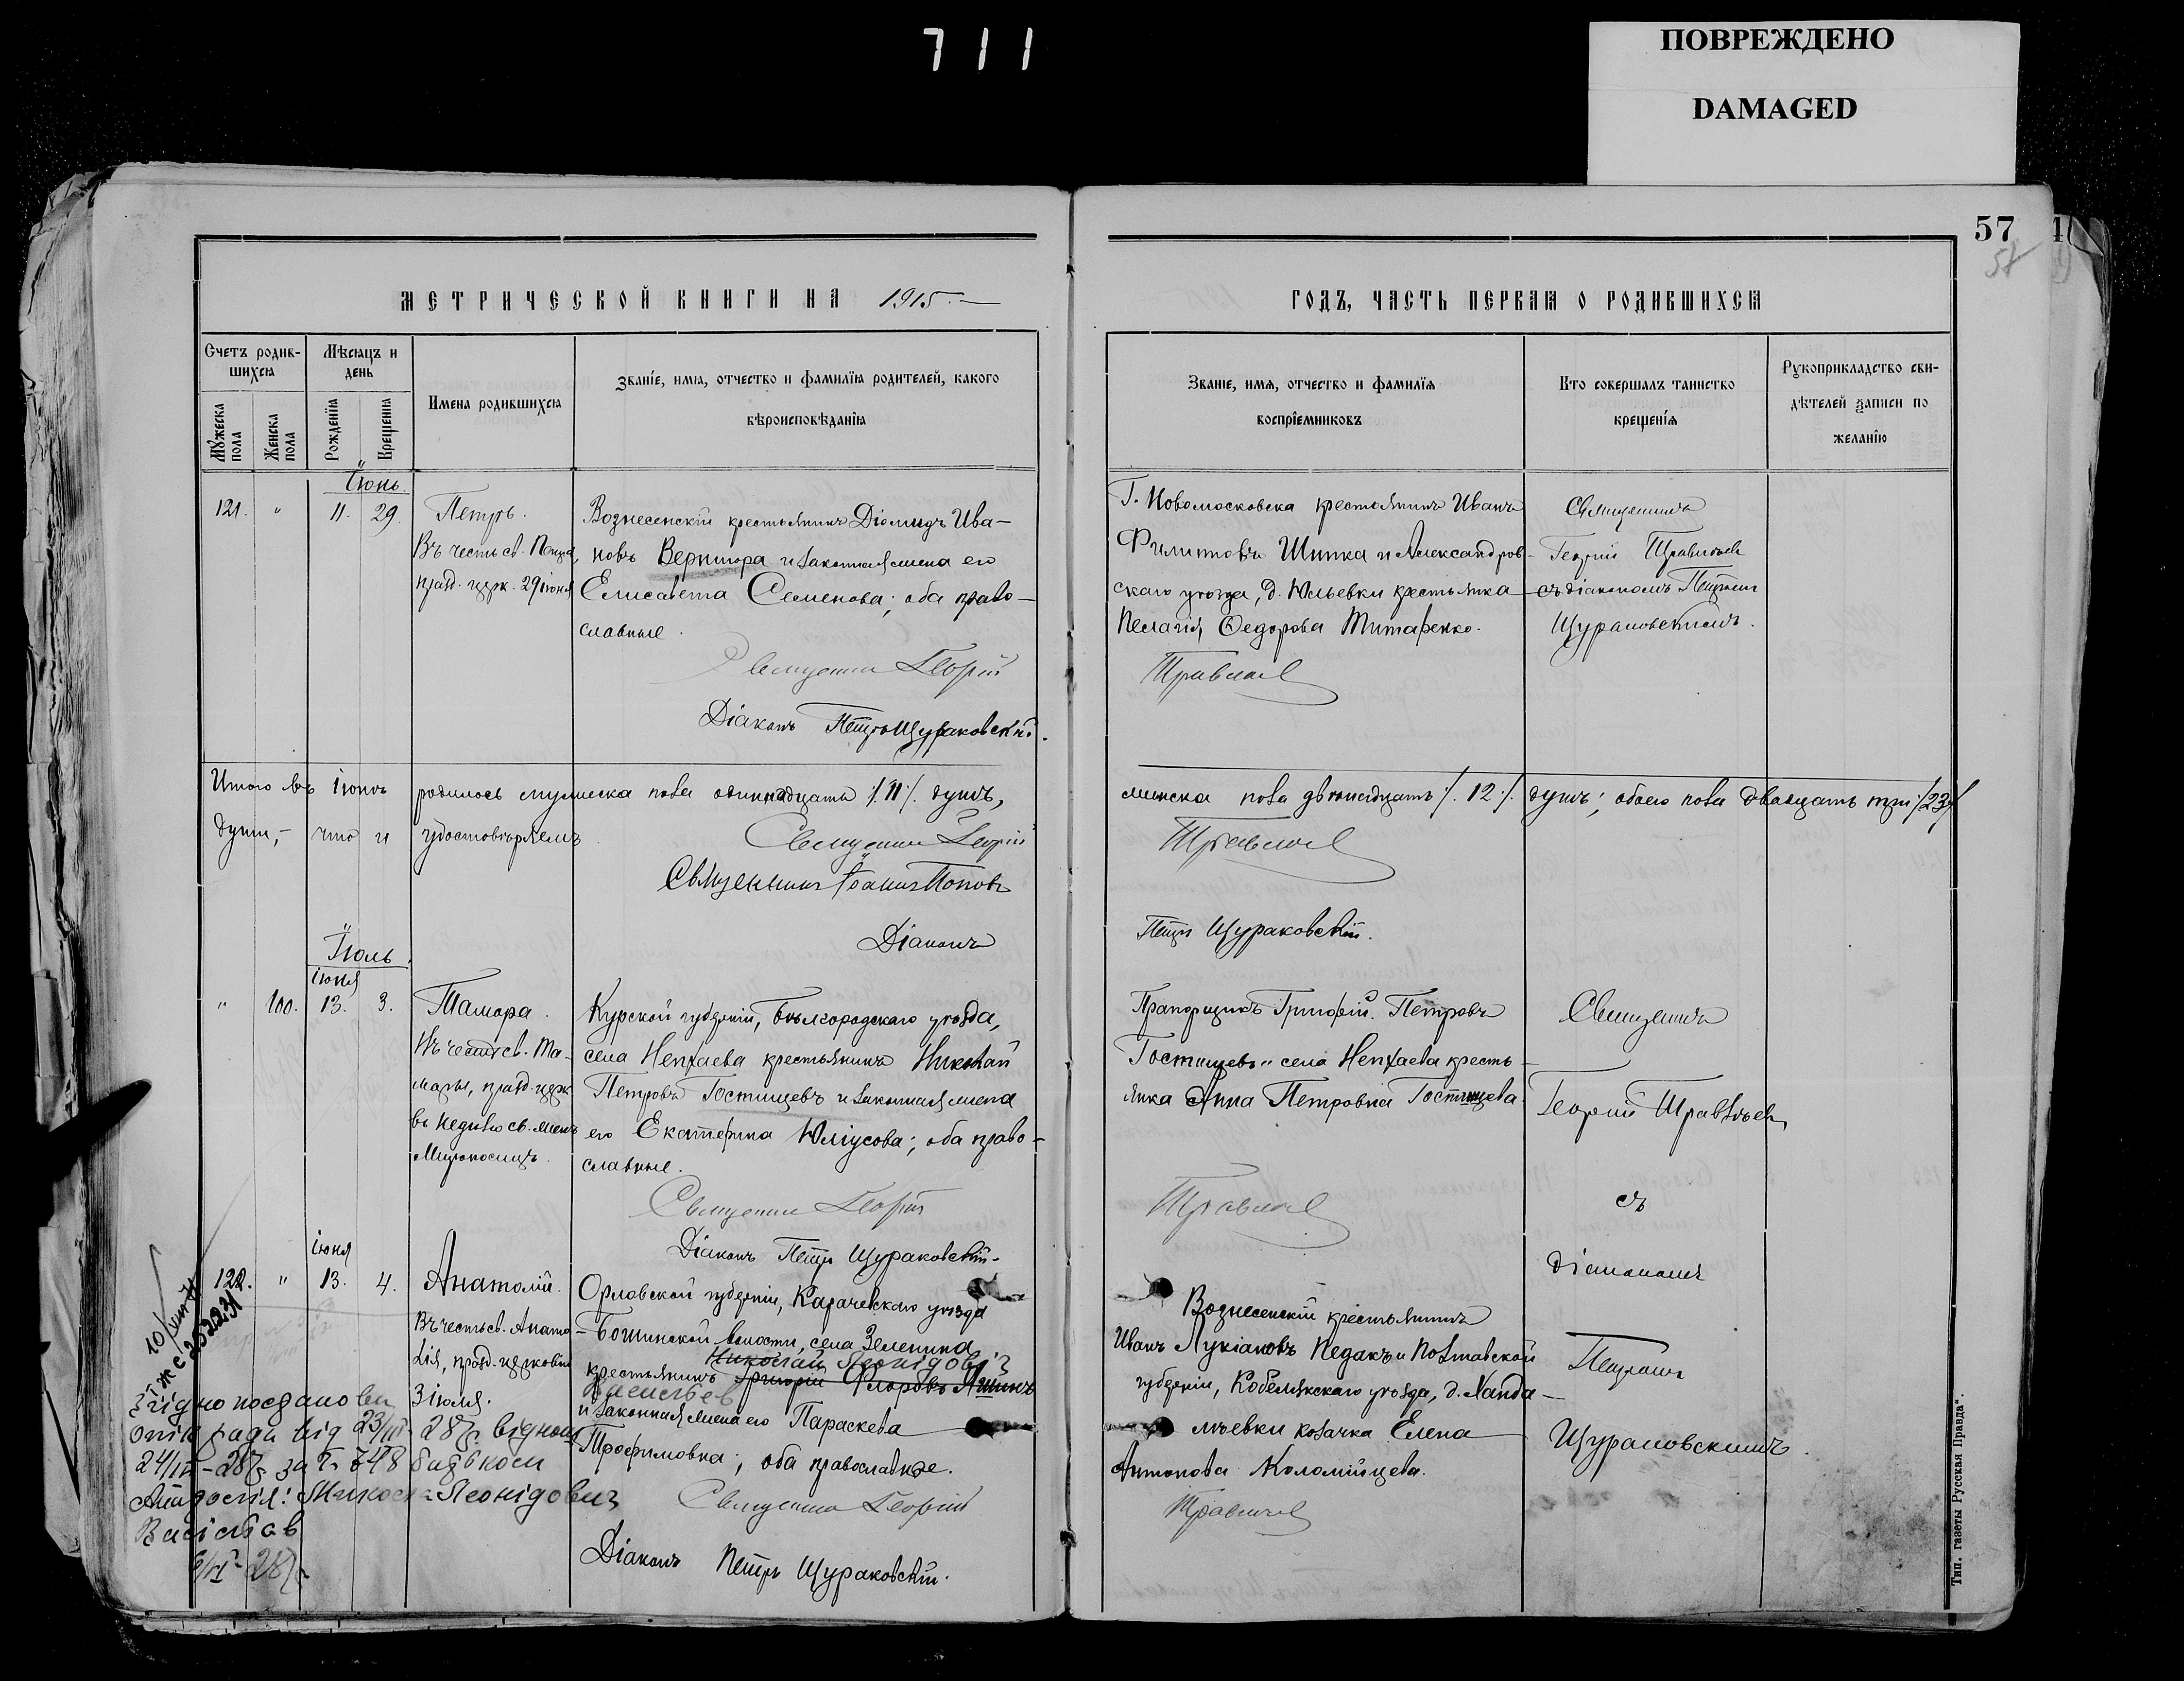 711
ПОВРЕЖДЕНО
DAMAGED
57
57
МЕТРИЧЕСКОЙ КНИГИ НА 1915.
ГОДЪ, ЧАСТЬ ПЕРВАЯ О РОДИВШИХСЯ
Счетъ родив-
шихся
Мужеска пола
Женска пола
Мѣсяцъ и
день
Рожденія
Крещенія
Имена родившихся
Званіе, имя, отчество и фамилія родителей, какого
вѣроисповѣданія
Званіе, имя, отчество и фамилія
воспріемниковъ
Кто совершалъ таинство
крещенія
Рукоприкладство сви-
дѣтелей записи по
желанію
Іюнь.
121. " 11. 29.
Петръ.
Въ честь св. Петра,
празд. церк. 29 іюня
Вознесенскій крестьянинъ Діомидъ Ива-
новъ Вернигора и законная жена его
Елисавета Семенова; оба право-
славные.
Священникъ Георгій
Діаконъ Петръ Щураковскій.
Г. Новомосковска крестьянинъ Иванъ
Филиповъ Шипка и Александров-
скаго уѣзда, д. Юльевки крестьянка
Пелагія Ѳедорова Титаренко.
Священникъ
Георгій
съ діакономъ Петромъ
Щураковскимъ.
Итого въ іюнѣ родилось мужеска пола одиннадцать /.11/. душъ,
женска пола двѣнадцать /. 12 /. душъ; обоего пола двадцать три /23/
душъ,- что и удостовѣряемъ
Священникъ Георгій
Священникъ Іоаннъ Поповъ
Діаконъ
Петръ Щураковскій.
Іюль.
іюня
" 100. 13. 3.
Тамара.
Въ честь св. Та-
мары, празд. церк.
въ недѣлю св. женъ
Мироносицъ.
Курской губерніи, Бѣлгородскаго уѣзда,
села Непхаева крестьянинъ Николай
Петровъ Гостищевъ и законная жена
его Екатерина Юліусова; оба право-
славные.
Священникъ Георгій
Діаконъ Петръ Щураковскій.
Прапорщикъ Григорій Петровъ
Гостищевъ и села Непхаева кресть-
янка Анна Петровна Гостищева.
Священникъ
Георгій
съ
діакономъ
Петромъ
Щураковскимъ.
іюня
122. " 13. 4.
Анатолій.
Въ честь св. Анато-
лія, празд. церковію
3 іюля.
Орловской губерніи, Карачевскаго уѣзда
волости, села Зеленина
Николай Леонідовіч
крестьянинъ Григорій Флоровъ
и законная жена его Параскева
Трофимовна; оба православные.
Священникъ Георгій
Діаконъ Петръ Щураковскій.
Вознесенскій крестьянинъ
Иванъ Лукіановъ Педакъ и Полтавской
губерніи, Кобелякскаго уѣзда, д. Ханда-
лѣевки козачка Елена
Антонова Коломійцева.
Згідно постанови
опік ради від 23/III 28 р.
24/III-28 р. за № 748 батьком
Анатолія: Миколу Леонідовіч
28 р.
Тип. газеты Русская Правда".